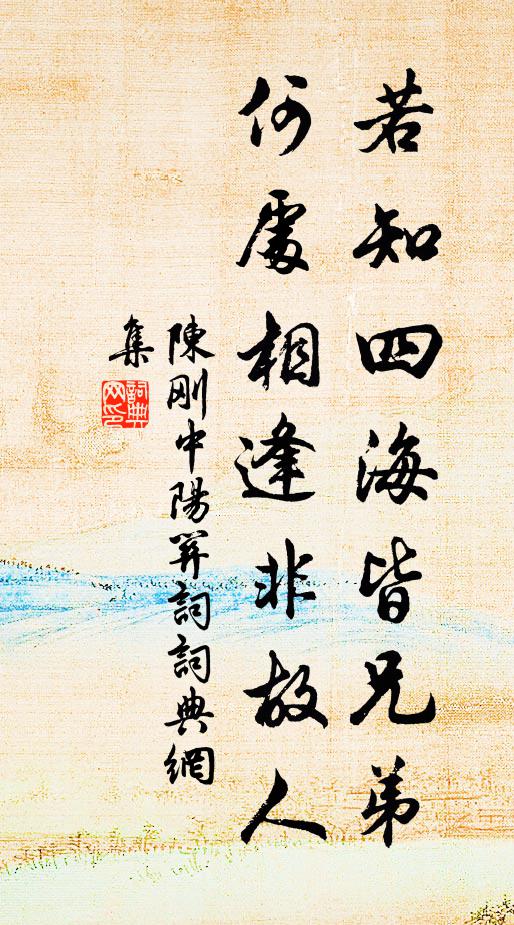 若知四海皆兄弟
何處相逢非故人
陳剛中陽關詞詞典網
集
詞典
网印